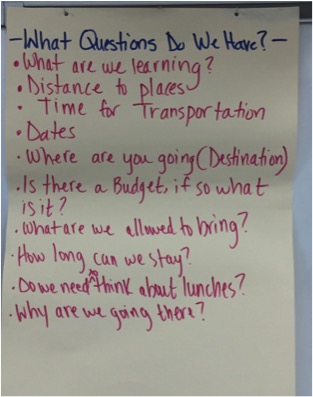 -What Questions Do We Have?-
• What are we learning?
• Distance to places
• Time for Transportation
• Dates
• Where are you going (Destination)
• Is there a Budget, if so what
is it?
• What are we allowed to bring?
• How long can we stay?
• Do we need to think about lunches?
• Why are we going there?